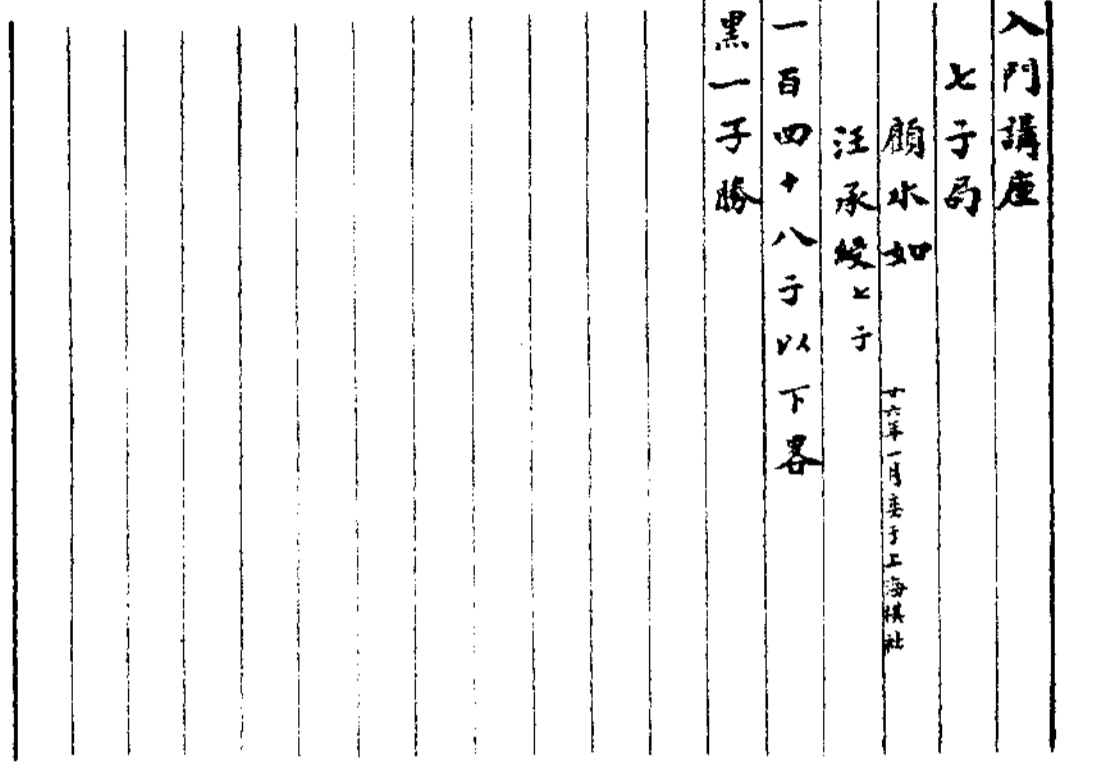 入門講座
七子局
顧水如 廿六年一月弈于上海棋社
汪承綬七子
一百四十八子以下畧
黑一子勝